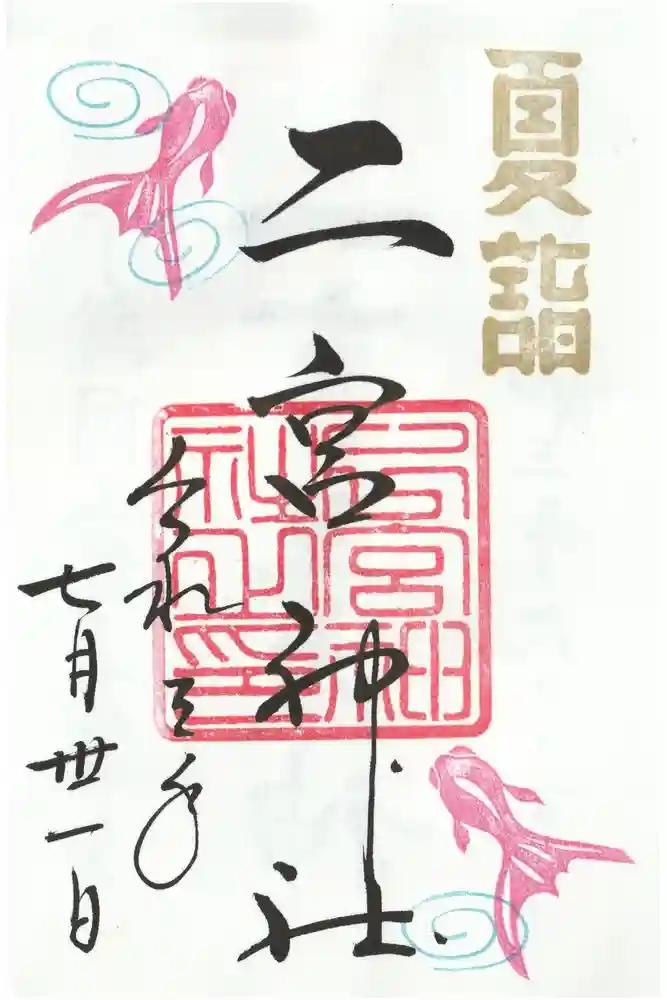 夏詣
二宮神社
宮神
社之印
令和三年
七月卅一日